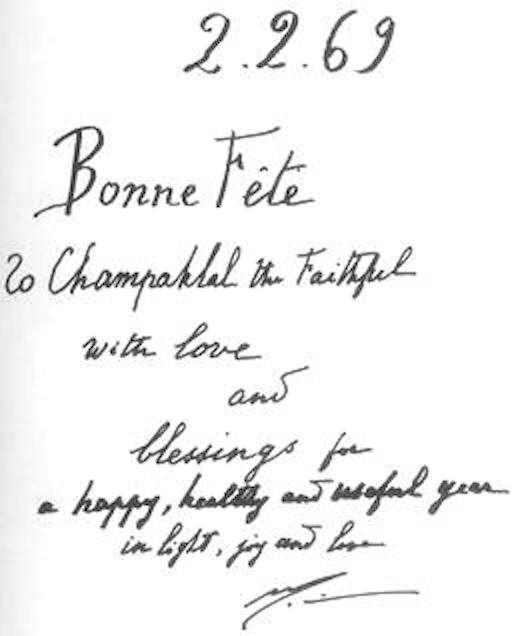 2.2.69
Bonne Fête
To Champaklal the Faithful
with love
and
blessings for
a happy, healthy and useful year
in light, joy and love